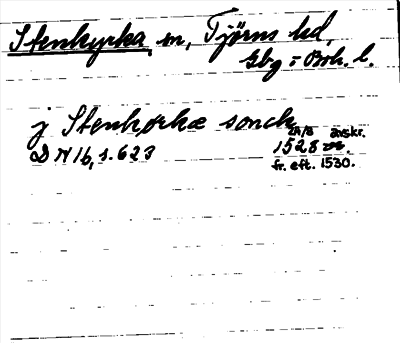 Stenkyrka sn, Tjörns hd,
Gbg o Boh. l.
j Stenkørkæ sonch
24/8 avskr.
DN 16, s. 623 1528
fr. eft. 1530.